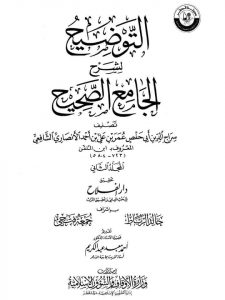 التوضيح
لشرح
الجامع الصحيح
تصنيف
سراج الدين أبي حفص عمر بن علي بن أحمد الأنصاري الشافعي
المعروف بابن الملقن
(٧٢٣ - ٨٠٤ هـ)
المجلد الثاني
تحقيق
دار الفلاح
بإشراف
خالد الرباط
جمعة فتحي
تقديم
أحمد معبد عبد الكريم
إصدارات
وزارة الأوقاف والشؤون الإسلامية